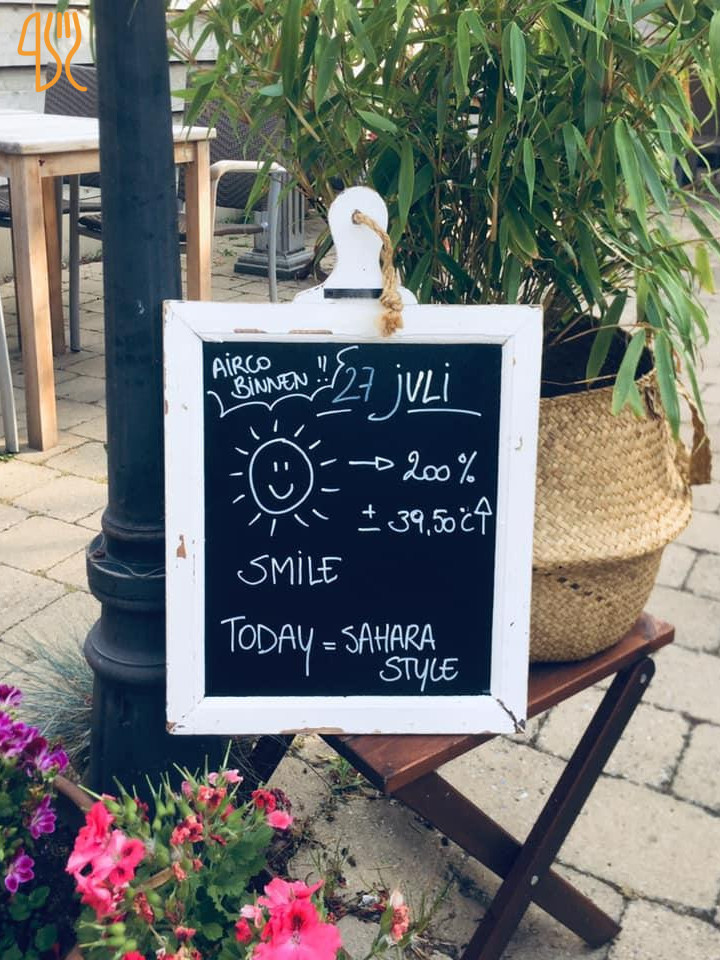 AiRCO
BiNNEN !!
27 jULi
→ 200 %
± 39,50 °C ↑
SMiLE
TODAY = SAHARA
STYLE